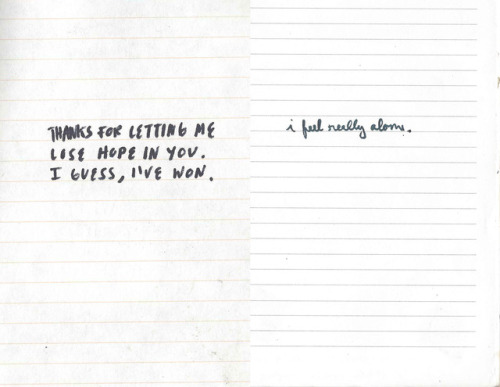 THANKS FOR LETTING ME
LOSE HOPE IN YOU.
I GUESS, I'VE WON.
i feel really alone.